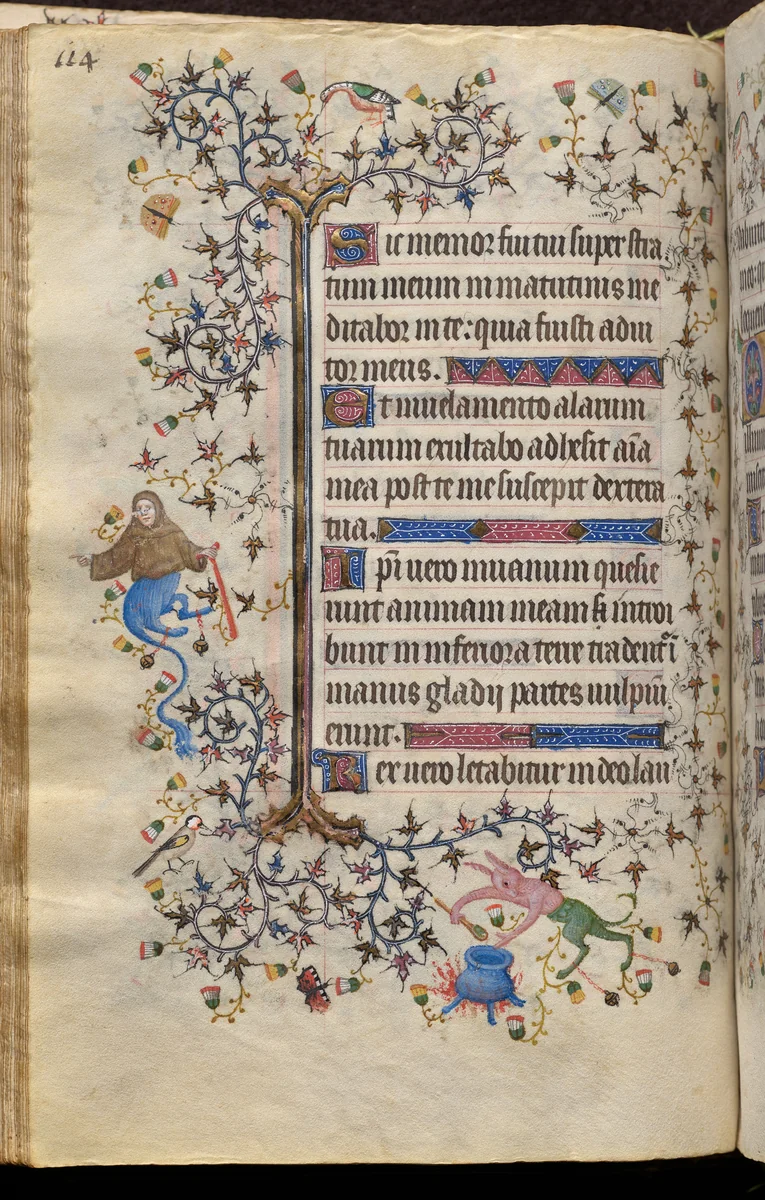 114
Sic memor fui tui super stra
tum meum in matutinis me
ditabor in te: quia fuisti adiu
tor meus.
Et in uelamento alarum
tuarum exultabo adhesit aīa
mea post te me suscepit dextera
tua.
Ipi uero in uanum quesie
runt animam meam introi
bunt in inferiora terre tradentr̄
in manus gladij partes uulpiū
erunt.
Rex uero letabitur in deo lau